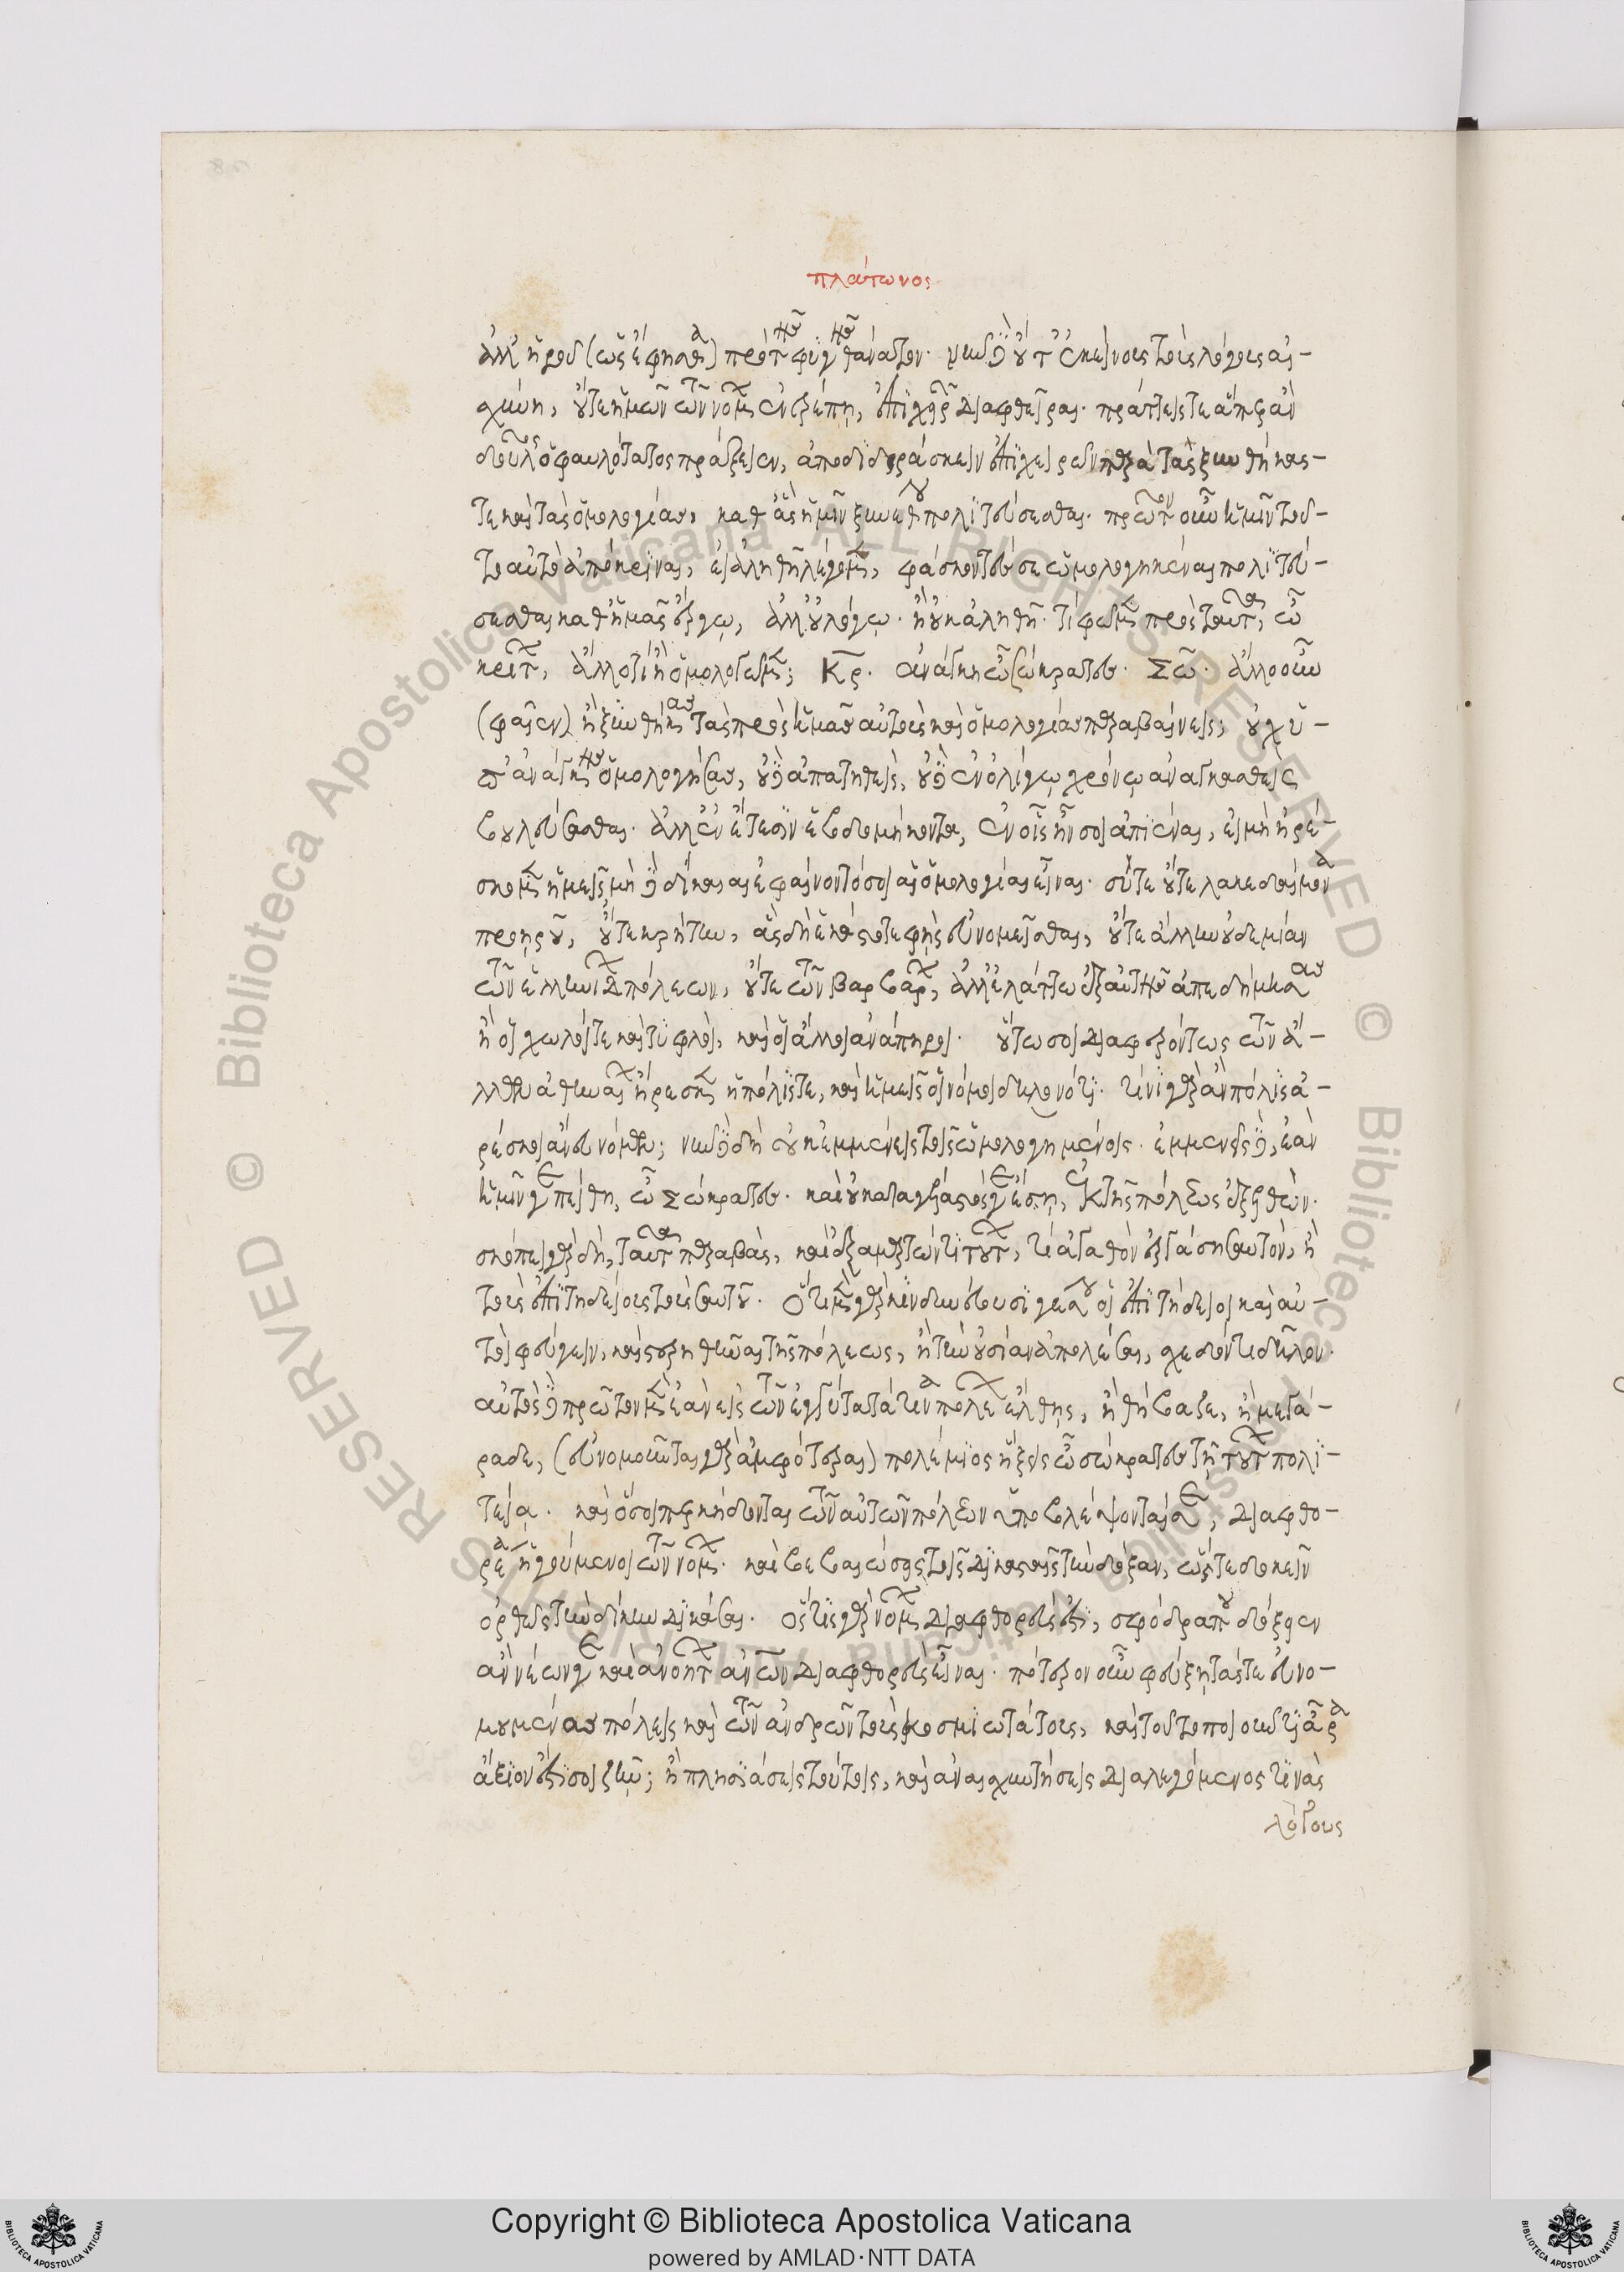 πλάτωνος
ἀλλ' ᾑροῦ (ὡς ἔφησθα) πρὸ τῆς φυγῆς θάνατον. νῦν δὲ οὔτ' ἐκείνους τοὺς λόγους αἰ-
σχύνῃ, οὔτε ἡμῶν τῶν νόμων ἐντρέπῃ, ἐπιχειρῶν διαφθεῖραι. πράττεις τε ἅπερ ἂν
δοῦλος ὁ φαυλότατος πράξειεν, ἀποδιδράσκειν ἐπιχειρῶν παρὰ τὰς ξυνθήκας
τε καὶ τὰς ὁμολογίας, καθ' ἃς ἡμῖν ξυνέθου πολιτεύεσθαι. πρῶτον οὖν ἡμῖν τοῦ-
το αὐτὸ ἀπόκριναι, εἰ ἀληθῆ λέγομεν, φάσκοντές σε ὡμολογηκέναι πολιτεύ-
σεσθαι καθ' ἡμᾶς ἔργῳ, ἀλλ' οὐ λόγῳ. ἢ οὐκ ἀληθῆ. τί φῶμεν πρὸς ταῦτα, ὦ
κρίτων, ἄλλο τι ἢ ὁμολογῶμεν; Κρ. ἀνάγκη ὦ σώκρατες. Σω. ἄλλο οὖν
(φαῖεν) ἢ ξυνθήκας τὰς πρὸς ἡμᾶς αὐτοὺς καὶ ὁμολογίας παραβαίνεις; οὐχ ὑ-
π' ἀνάγκης ὁμολογήσας, οὐδὲ ἀπατηθεὶς, οὐδὲ ἐν ὀλίγῳ χρόνῳ ἀναγκασθεὶς
βουλεύσασθαι. ἀλλ' ἐν ἔτεσιν ἑβδομήκοντα, ἐν οἷς ἦν σοι ἀπιέναι, εἰ μὴ ἠρέ-
σκομεν ἡμεῖς μὴ δὲ δίκαιαι ἐφαίνοντό σοι αἱ ὁμολογίαι εἶναι. σὺ δὲ οὔτε λακεδαίμονα
προῃροῦ, οὔτε κρήτην, ἃς δὴ ἑκάστοτε φῂς εὐνομεῖσθαι, οὔτε ἄλλην οὐδεμίαν
τῶν ἑλληνίδων πόλεων, οὔτε τῶν βαρβάρων, ἀλλ' ἐλάττω ἐξ αὐτῆς ἀπεδήμησας
ἢ οἱ χωλοί τε καὶ τυφλοὶ, καὶ οἱ ἄλλοι ἀνάπηροι. οὕτω σοι διαφερόντως τῶν ἄ-
λλων ἀθηναίων ἤρεσκεν ἡ πόλις τε, καὶ ἡμεῖς οἱ νόμοι δηλονότι. τίνι γὰρ ἂν πόλις ἀ-
ρέσκοι ἄνευ νόμων; νῦν δὲ δὴ οὐκ ἐμμένεις τοῖς ὡμολογημένοις. ἐμμενεῖς δὲ, ἐὰν
ἡμῖν γε πείθῃ, ὦ Σώκρατες. καὶ οὐ καταγέλαστός γε ἔσῃ, ἐκ τῆς πόλεως ἐξελθών.
σκόπει γὰρ δὴ, ταῦτα παραβὰς, καὶ ἐξαμαρτών τι τούτων, τί ἀγαθὸν ἐργάσῃ σαυτὸν, ἢ
τοὺς ἐπιτηδείους τοὺς σαυτοῦ. Ὅτι μὲν γὰρ κινδυνεύουσί γέ σου οἱ ἐπιτήδειοι καὶ αὐ-
τοὶ φεύγειν, καὶ στερηθῆναι τῆς πόλεως, ἢ τὴν οὐσίαν ἀπολέσαι, σχεδόν τι δῆλον.
αὐτὸς δὲ πρῶτον μὲν ἐὰν εἰς τῶν ἐγγύτατά τινα πόλεων ἔλθῃς, ἢ θήβαζε, ἢ μέγά-
ραδε, (εὐνομοῦνται γὰρ ἀμφότεραι) πολέμιος ἥξεις ὦ σώκρατες τῇ τούτων πολι-
τείᾳ. καὶ ὅσοιπερ κήδονται τῶν αὑτῶν πόλεων ὑποβλέψονταί σε, διαφθο-
ρέα ἡγούμενοι τῶν νόμων. καὶ βεβαιώσεις τοῖς δικασταῖς τὴν δόξαν, ὥστε δοκεῖν
ὀρθῶς τὴν δίκην δικάσαι. Ὅστις γὰρ νόμων διαφθορεύς ἐστι, σφόδρα που δόξειεν
ἂν νέων γε καὶ ἀνοήτων ἀνθρώπων διαφθορεὺς εἶναι. πότερον οὖν φεύξῃ τάς τε εὐνο-
μουμένας πόλεις καὶ τῶν ἀνδρῶν τοὺς κοσμιωτάτους, καὶ τοῦτο ποιοῦντι ἆρα
ἄξιον ἔσται σοι ζῆν; ἢ πλησιάσεις τούτοις, καὶ ἀναισχυντήσεις διαλεγόμενος τίνας
λόγους
Copyright © Biblioteca Apostolica Vaticana
powered by AMLAD·NTT DATA